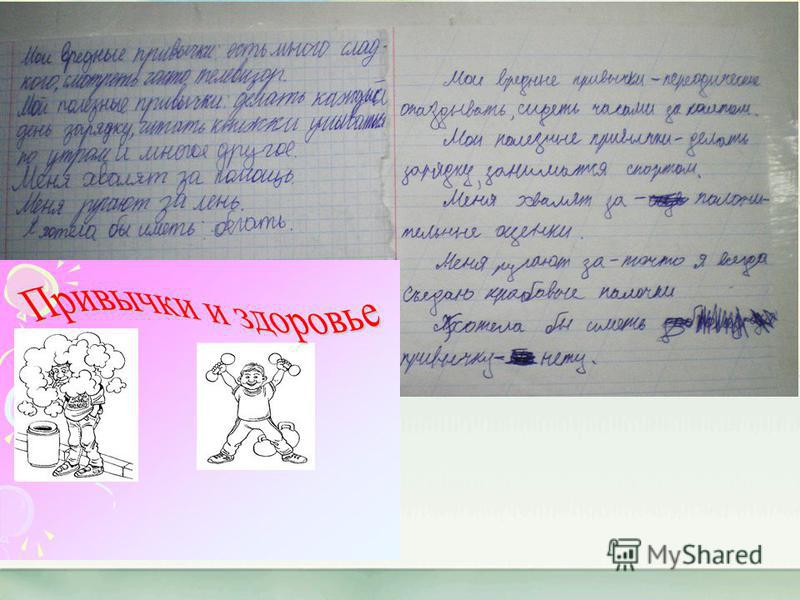 Мои вредные привычки: есть много слад-
кого, смотреть часто телевизор.
Мои полезные привычки: делать каждый
день зарядку, читать книжки умываться
по утрам и многое другое.
Меня хвалят за помощь.
Меня ругают за лень.
Я хотела бы иметь: бегать.
Мои вредные привычки - переодические
опаздывать, сидеть часами за компом.
Мои полезные привычки - делать
зарядку, заниматся спортом.
Меня хвалят за - положи-
тельные оценки.
Меня ругают за - точто я всегда
съедаю крабовые палочки
Я хотела бы иметь
привычку - нету.
Привычки и здоровье
MyShared